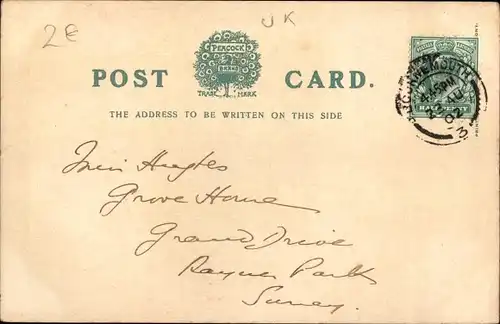 2€
UK
PEACOCK
BRAND
TRADE MARK
POST CARD.
THE ADDRESS TO BE WRITTEN ON THIS SIDE
BOURNEMOUTH
02
3
HALFPENNY
Miss Hughes
Grove House
Grand Drive
Raynes Park
Surrey.